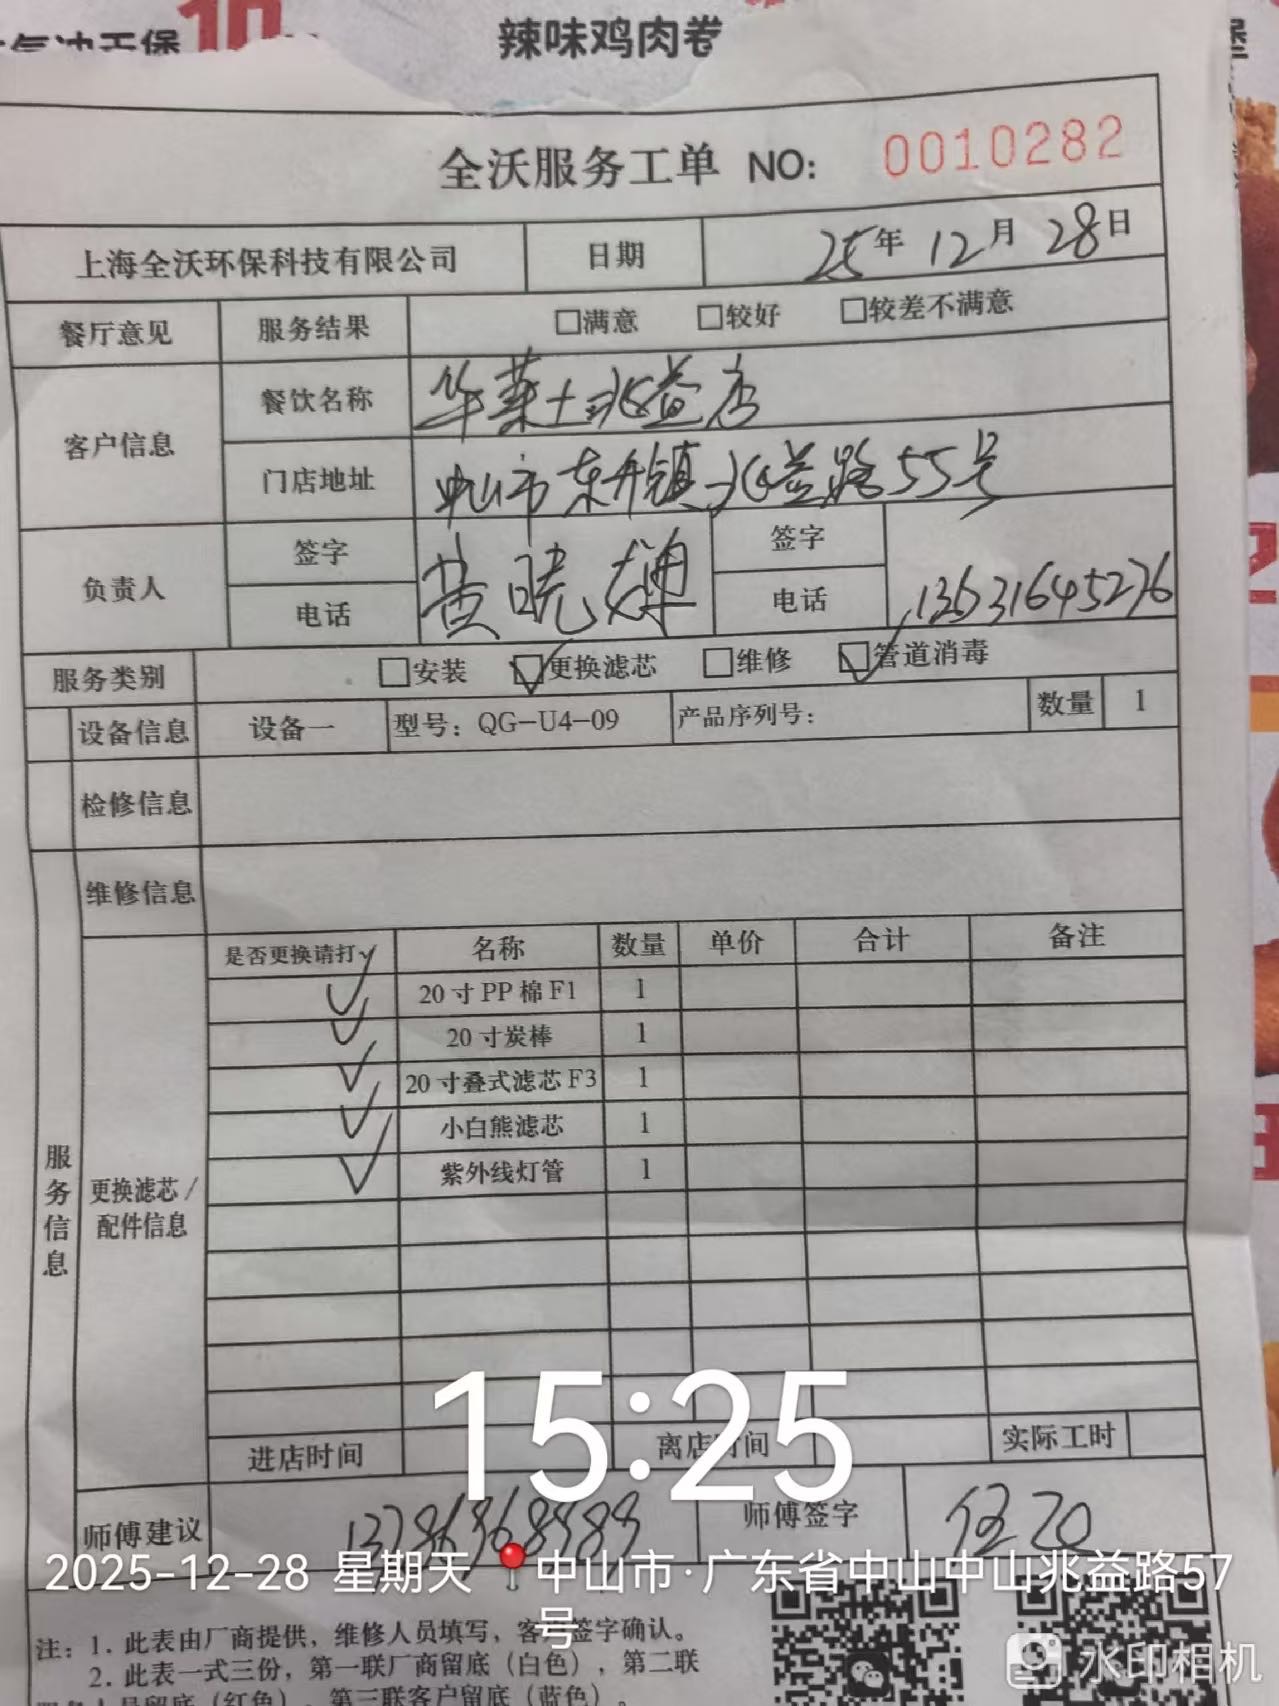 辣味鸡肉卷
全沃服务工单 NO: 0010282
上海全沃环保科技有限公司 日期 25年 12月 28日
餐厅意见 服务结果 □满意 □较好 □较差不满意
客户信息 餐饮名称 华莱士兆益店
门店地址 中山市东升镇兆益路55号
负责人 签字 电话 黄晓雄 签字 电话 13631645276
服务类别 □安装 ☑更换滤芯 □维修 ☑管道消毒
设备信息 设备一 型号：QG-U4-09 产品序列号： 数量 1
检修信息
维修信息
服务信息
更换滤芯/配件信息
是否更换请打✓ 名称 数量 单价 合计 备注
✓ 20寸PP棉F1 1
✓ 20寸炭棒 1
✓ 20寸叠式滤芯F3 1
✓ 小白熊滤芯 1
✓ 紫外线灯管 1
15:25
进店时间 离店时间 实际工时
师傅建议 师傅签字
2025-12-28 星期天 中山市·广东省中山中山兆益路57号
注：1. 此表由厂商提供，维修人员填写，客户签字确认。
2. 此表一式三份，第一联厂商留底（白色），第二联
人员留底（红色）、第三联客户留底（蓝色）。
水印相机